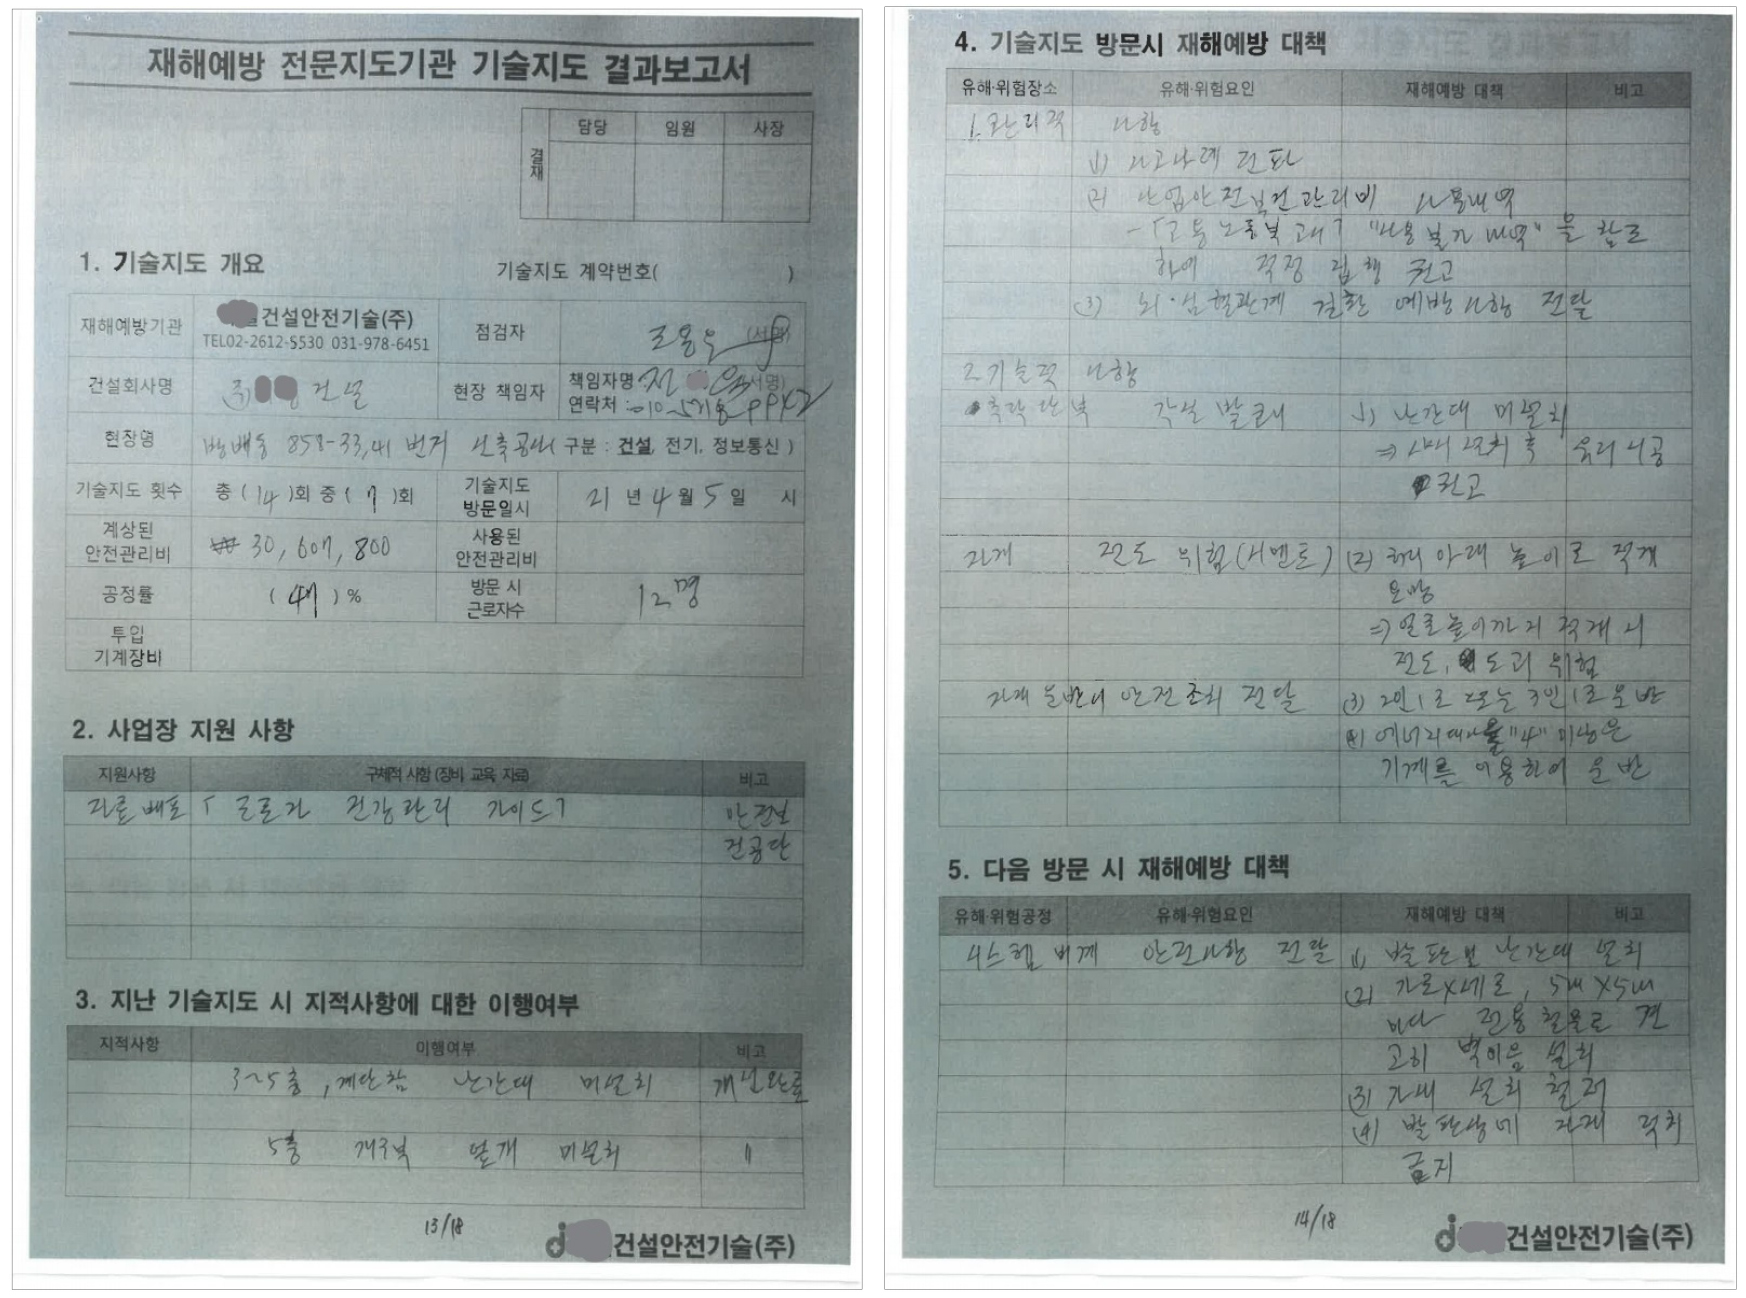 재해예방 전문지도기관 기술지도 결과보고서
결재
담당 임원 사장
1. 기술지도 개요
기술지도 계약번호( )
재해예방기관
건설안전기술(주)
TEL02-2612-5530 031-978-6451
점검자
(서명)
건설회사명
건설
현장 책임자
책임자명 (서명)
연락처 :
현장명
방배동 858-33,41 번지 신축공사 구분 : 건설, 전기, 정보통신 )
기술지도 횟수
총 ( 14 )회 중 ( 7 )회
기술지도
방문일시
21 년 4 월 5 일 시
계상된
안전관리비
₩ 30,607,800
사용된
안전관리비
공정률
( 47 ) %
방문 시
근로자수
12명
투입
기계장비
2. 사업장 지원 사항
지원사항 구체적 사항 (장비 교육 자료) 비고
자료배포 「근로자 건강관리 가이드」 안전보
건공단
3. 지난 기술지도 시 지적사항에 대한 이행여부
지적사항 이행여부 비고
3~5층, 계단참 난간대 미설치 개선완료
5층 개구부 덮개 미설치 〃
13/18
건설안전기술(주)
4. 기술지도 방문시 재해예방 대책
유해·위험장소 유해·위험요인 재해예방 대책 비고
1. 관리적 사항
(1) 사고사례 전파
(2) 산업안전보건관리비 사용내역
-「고용노동부 고시」 "사용불가내역"을 참조
하여 적정 집행 권고
(3) 뇌·심혈관계 질환 예방사항 전달
2. 기술적 사항
추락 단부 각실 발코니 (1) 난간대 미설치
⇒ 설치 후 유리시공
권고
자재 전도 위험(시멘트) (2) 허리 아래 높이로 적재
요망
⇒ 얼굴높이까지 적재 시
전도, 도괴 위험
자재 운반시 안전조치 전달 (3) 2인 1조 또는 3인 1조 운반
(4) 에너지대사율 "4" 이상은
기계를 이용하여 운반
5. 다음 방문 시 재해예방 대책
유해·위험공정 유해·위험요인 재해예방 대책 비고
시스템 비계 안전사항 전달 (1) 발판 및 난간대 설치
(2) 가로X세로, 5m X 5m
마다 전용철물로 견
고히 벽이음 설치
(3) 가새 설치 철저
(4) 발판상에 자재 적치
금지
14/18
건설안전기술(주)